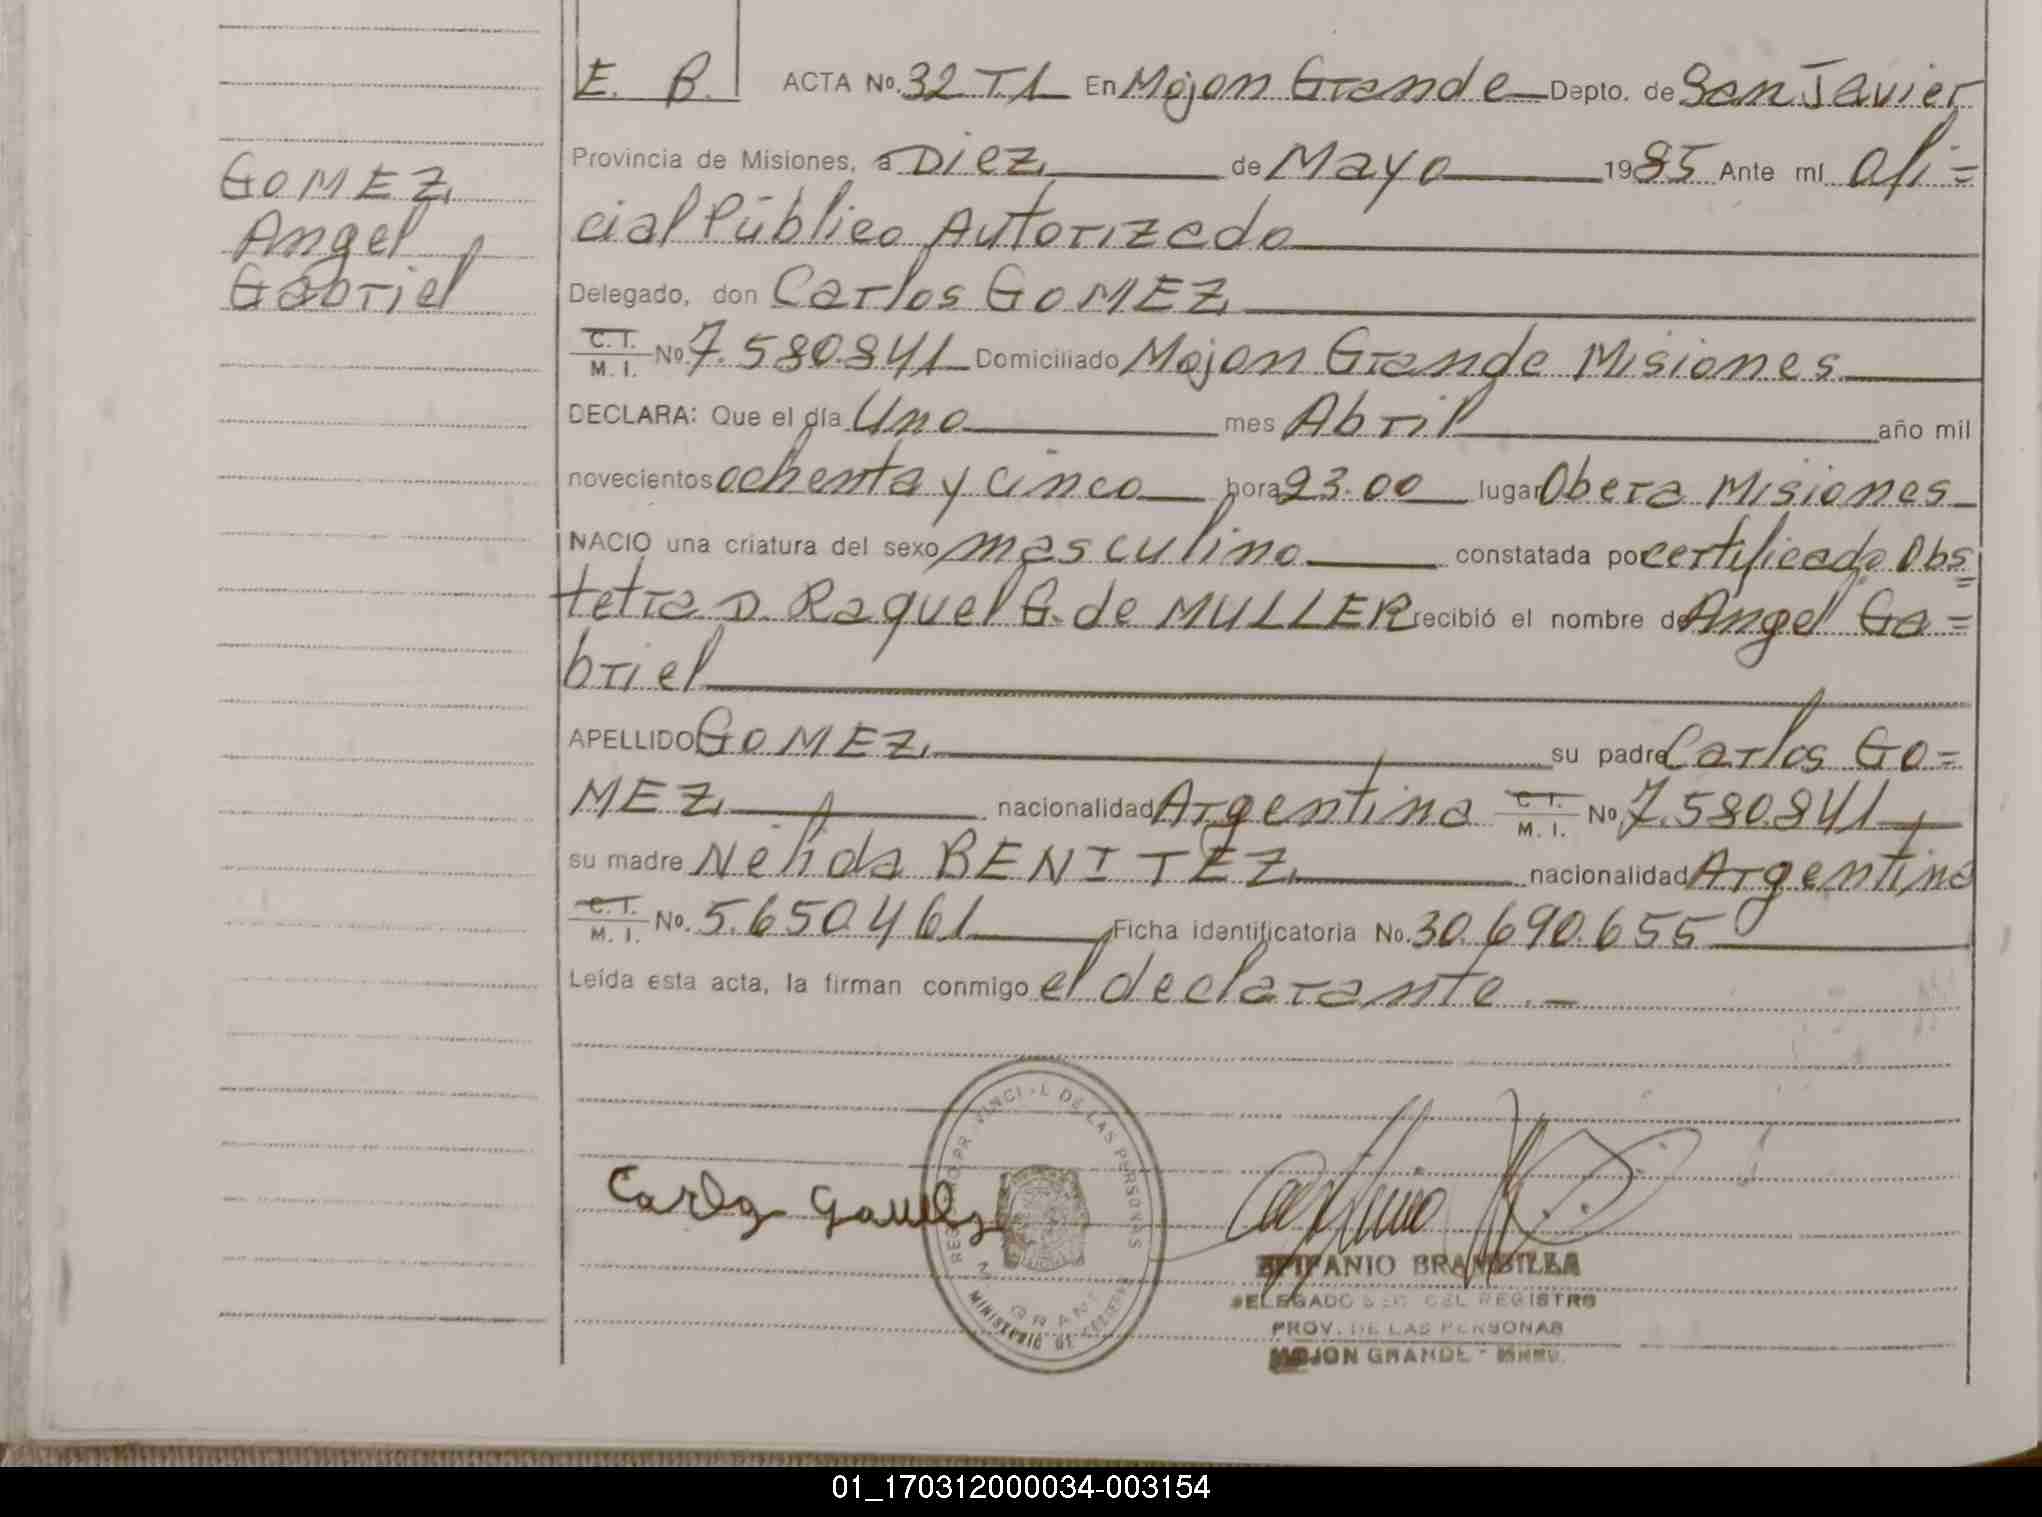 E. B. ACTA No. 32 T1 En Mojon Grande Depto. de San Javier
Provincia de Misiones, a Diez de Mayo 1985 Ante mí Ofi=
cial Público Autorizado
GOMEZ
Angel
Gabriel
Delegado, don Carlos GOMEZ
C. I. M. I. No. 7.580.841 Domiciliado Mojon Grande Misiones
DECLARA: Que el día Uno mes Abril año mil
novecientos ochenta y cinco hora 23.00 lugar Obera Misiones
NACIO una criatura del sexo masculino constatada por certificado Obs=
tetra D. Raquel G. de MULLER recibió el nombre de Angel Ga=
briel
APELLIDO GOMEZ su padre Carlos GO=
MEZ nacionalidad Argentina C. I. M. I. No. 7.580.841
su madre Nelida BENITEZ nacionalidad Argentina
C. I. M. I. No. 5.650.461 Ficha identificatoria No. 30.690.655
Leída esta acta, la firman conmigo el declarante. –
DE LAS PERSONAS
MINISTERIO DE
EPIFANIO BRAMBILLA
DELEGADO DEL REGISTRO
PROV. DE LAS PERSONAS
MOJON GRANDE -
01_170312000034-003154